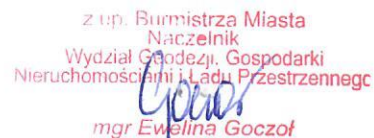 z up. Burmistrza Miasta
Naczelnik
Wydział Geodezji, Gospodarki
Nieruchomościami i Ładu Przestrzennego
Goczoł
mgr Ewelina Goczoł